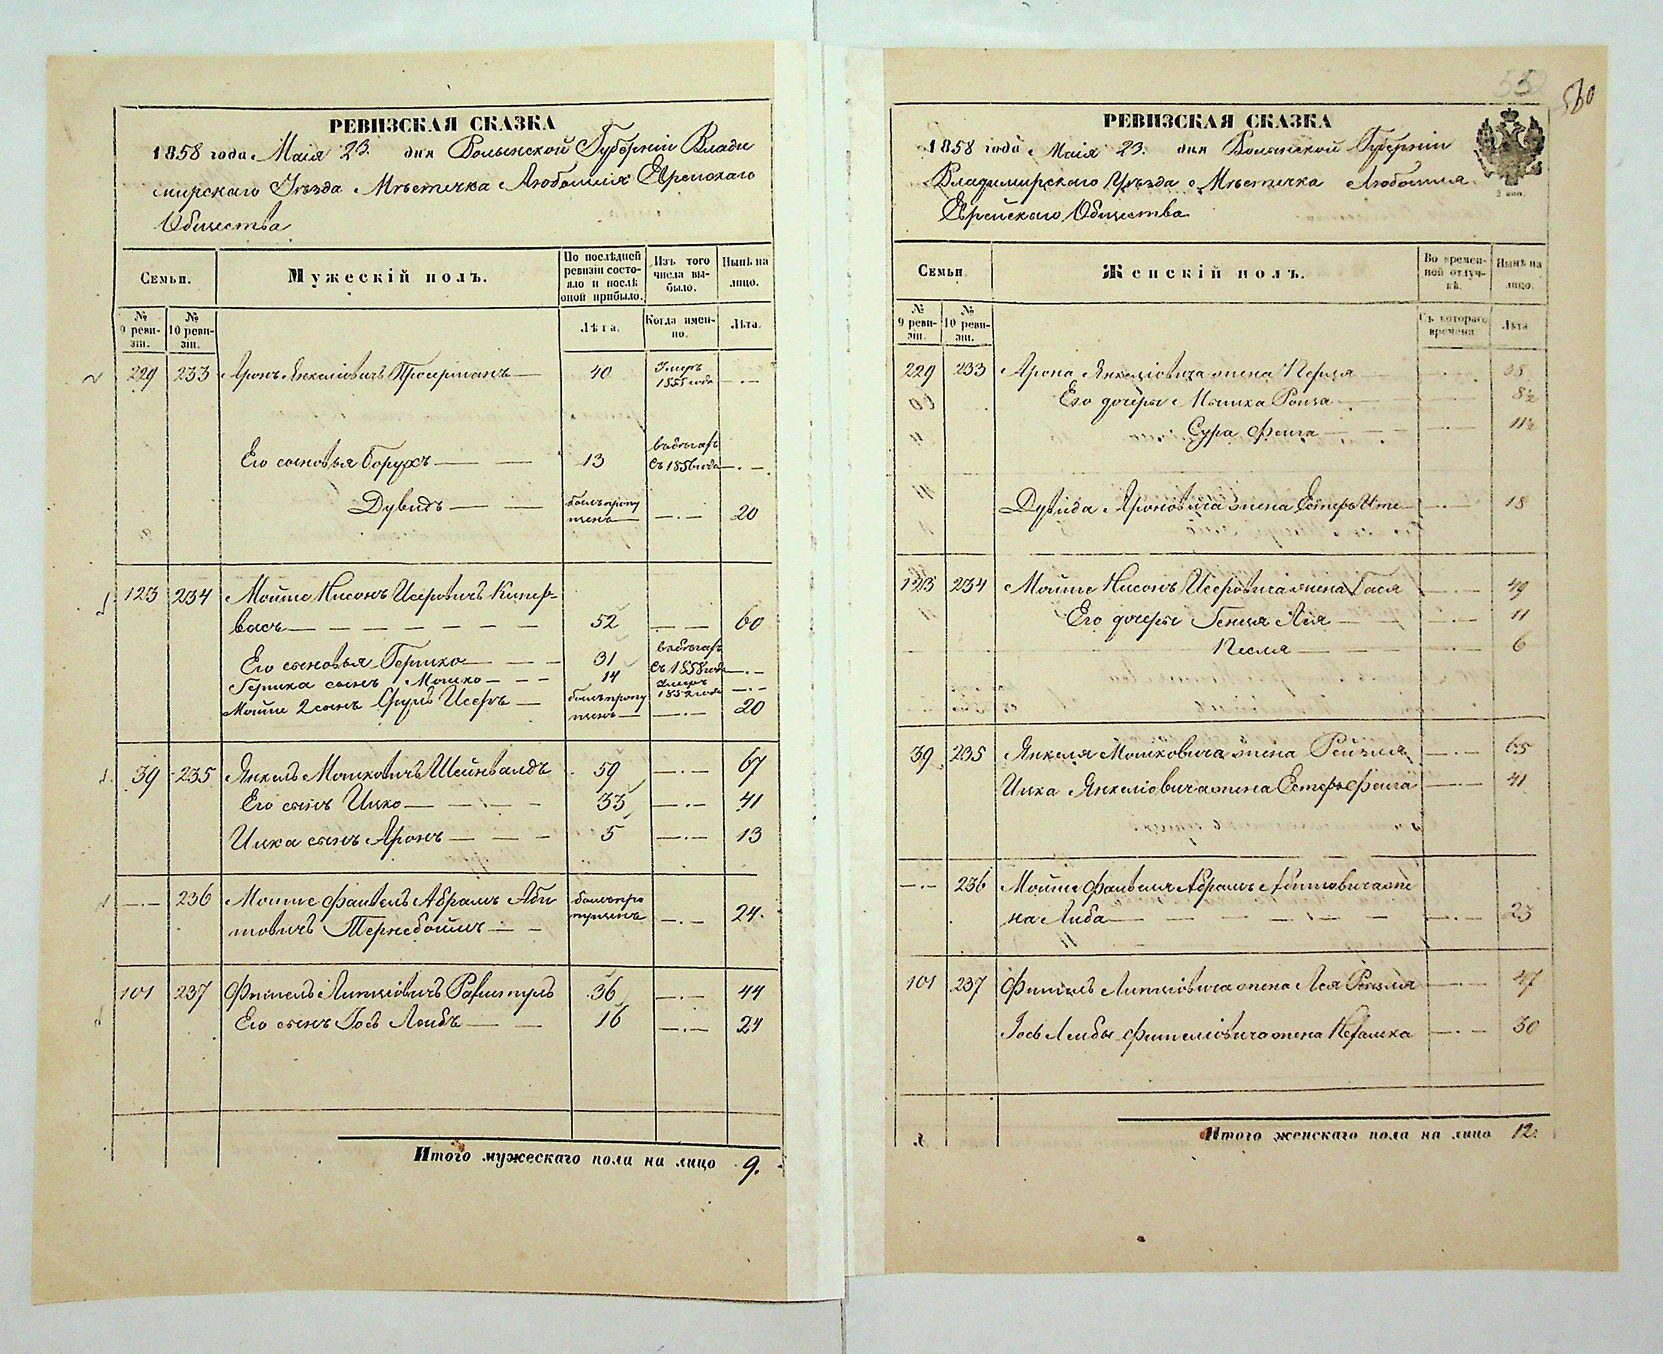 РЕВИЗСКАЯ СКАЗКА
1858 года Маія 23. дня Волынской Губерніи Влади
мирскаго Уѣзда Мѣстечка Любомля Еврейскаго
Общества
Семьи.
Мужескій полъ.
По послѣдней ревизіи состояло и послѣ оной прибыло.
Изъ того числа выбыло.
Нынѣ на лицо.
№ 9 ревизіи.
№ 10 ревизіи.
Лѣта.
Когда именно.
Лѣта.
229 233 Аронъ Янкеліовичъ 40 Умеръ 1855 года
Его сыновья Борухъ 13 въ бѣгахъ съ 1856 года
Дувидъ былъ пропущенъ 20
123 234 Мойше Нисонъ Исеровичъ
васъ 52 60
Его сыновья Гершко 31 въ бѣгахъ съ 1858 года
Гершка сынъ Мошко 14 Умеръ 1852 года
Мойше 2 сынъ Сруль Исеръ былъ пропущенъ 20
39 235 Янкель Мошковичъ Шейнвалдъ 59 67
Его сынъ Ицко 33 41
Ицка сынъ Аронъ 5 13
236 Мойше Файвель Абрамъ Аби
мовичъ былъ пропущенъ 24
101 237 Фишель 36 44
Его сынъ Іось Лейбъ 16 24
Итого мужескаго пола на лицо 9.
560
РЕВИЗСКАЯ СКАЗКА
1858 года Маія 23. дня Волынской Губерніи
Владимирскаго Уѣзда Мѣстечка Любомля
Еврейскаго Общества
Семьи
Женскій полъ.
Во временной отлучкѣ.
Нынѣ на лицо.
№ 9 ревизіи.
№ 10 ревизіи.
Съ котораго времени
Лѣта
229 233 Арона Янкеліовича жена Перля
Его дочери
Сура Фейга
Дувида Ароновича жена Естеръ Ите 18
123 234 Мойше Нисонъ Исеровича жена Гася 49
Его дочери Генця Лія 11
Песля 6
39 235 Янкеля Мошковича жена Рейзля 65
Ицка Янкеліовича жена Естеръ Фейга 41
236 Мойше Файвеля Абрамъ Абимовича же
на Либа 23
101 237 Фишель жена Лея Рейзля 47
Іось Лейбы Фишеліовича жена 30
Итого женскаго пола на лицо 12.